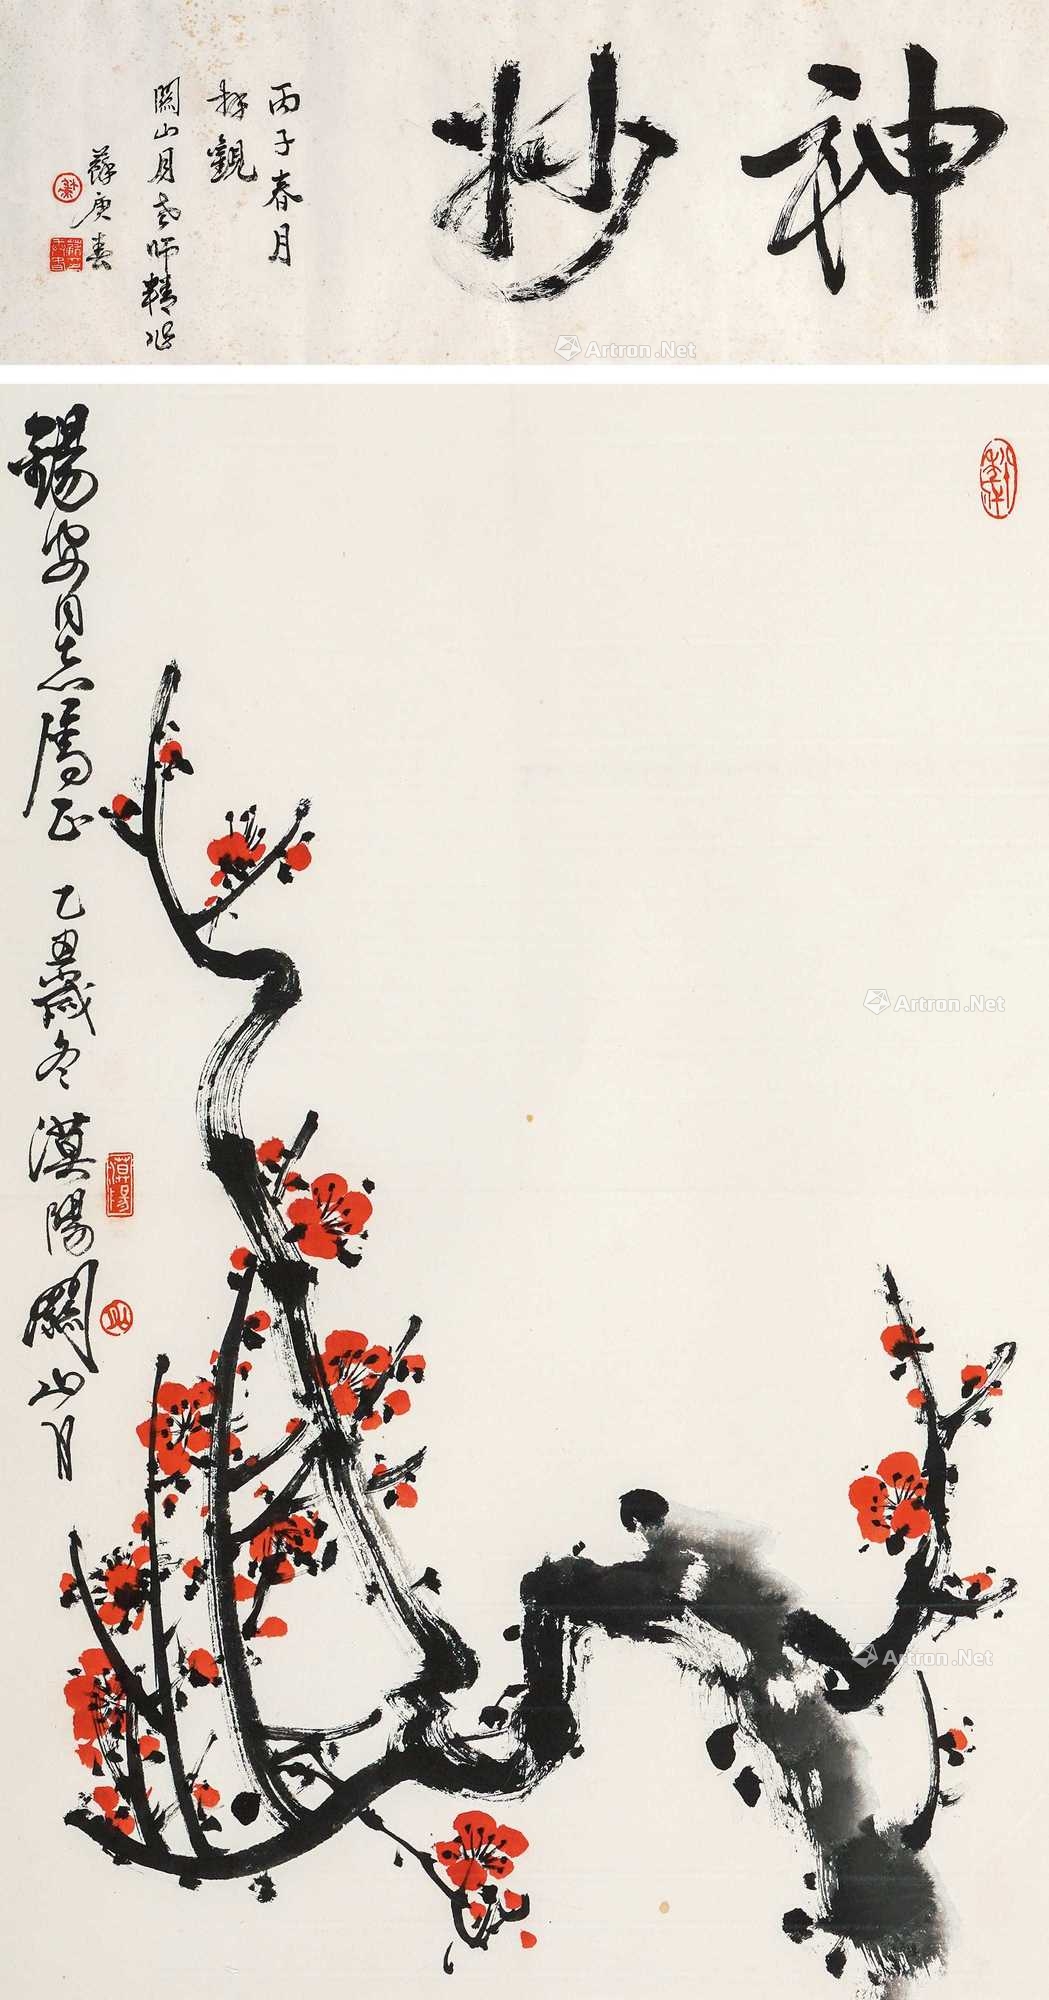 神妙
丙子春月
拜觀
關山月老師精品
蘇庚春
錫安同志屬正 乙丑歲冬 漠陽關山月
漠陽
Artron.Net
Artron.Net
Artron.Net